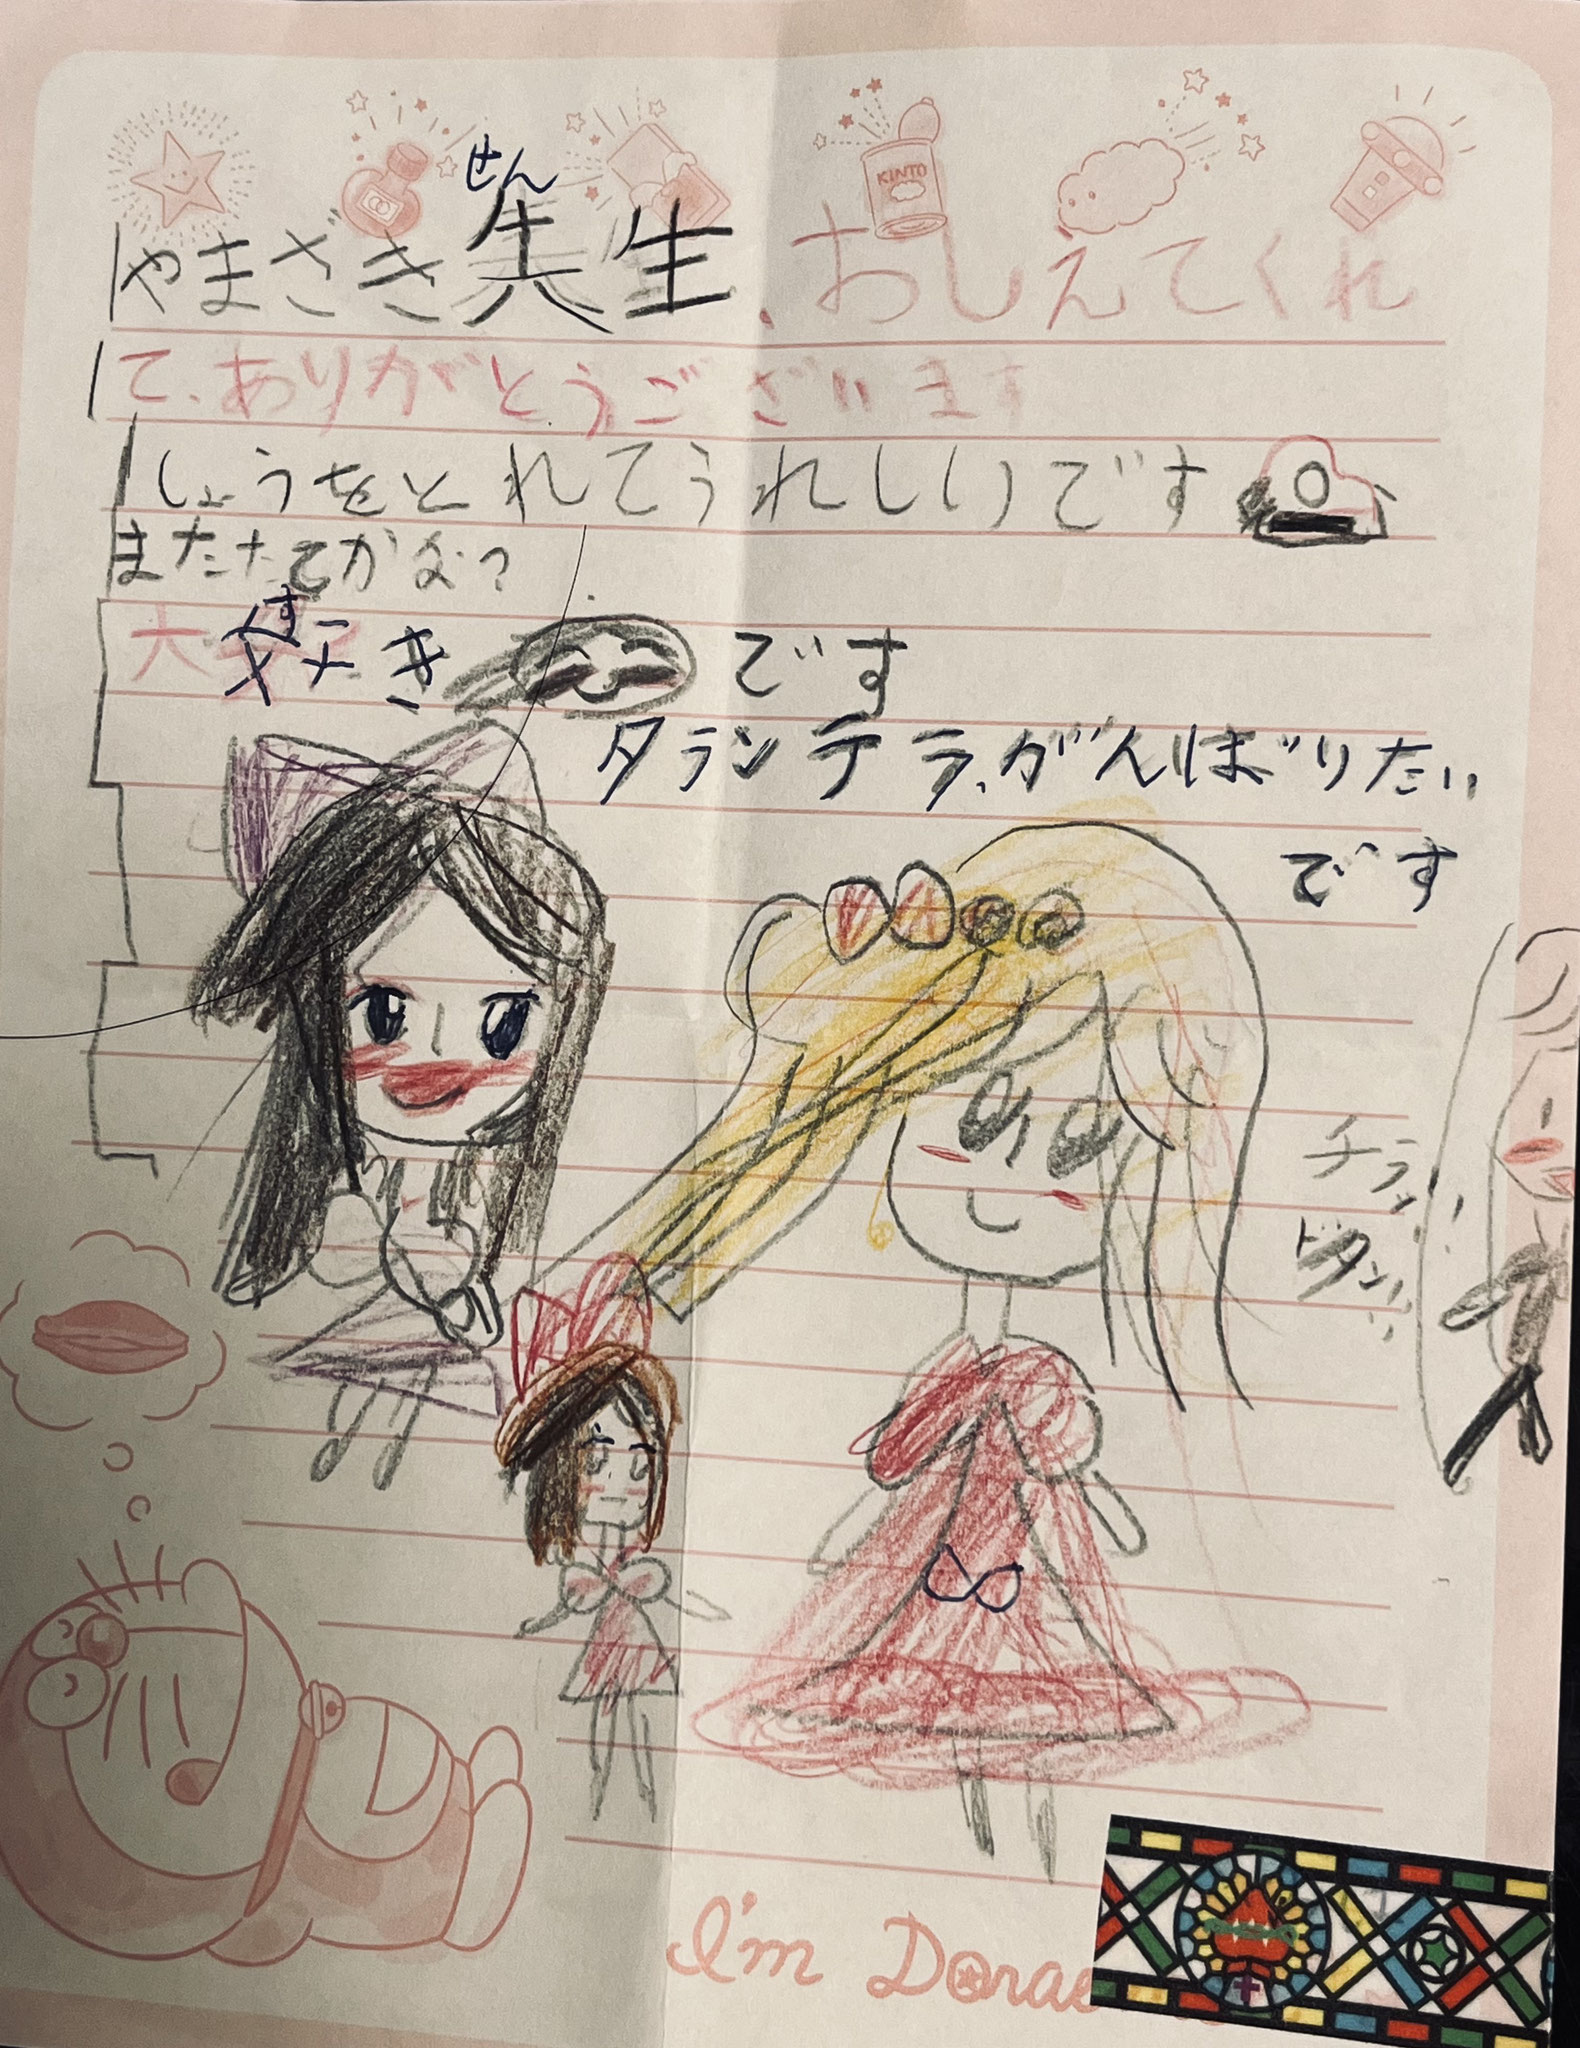 KINTO
せん
やまざき先生、おしえてくれ
て、ありがとうございます
しょうをとれてうれしいです
す
大好き です
タランテラ、がんばりたい
です
チラッ
ドタンッ
I'm Dorae